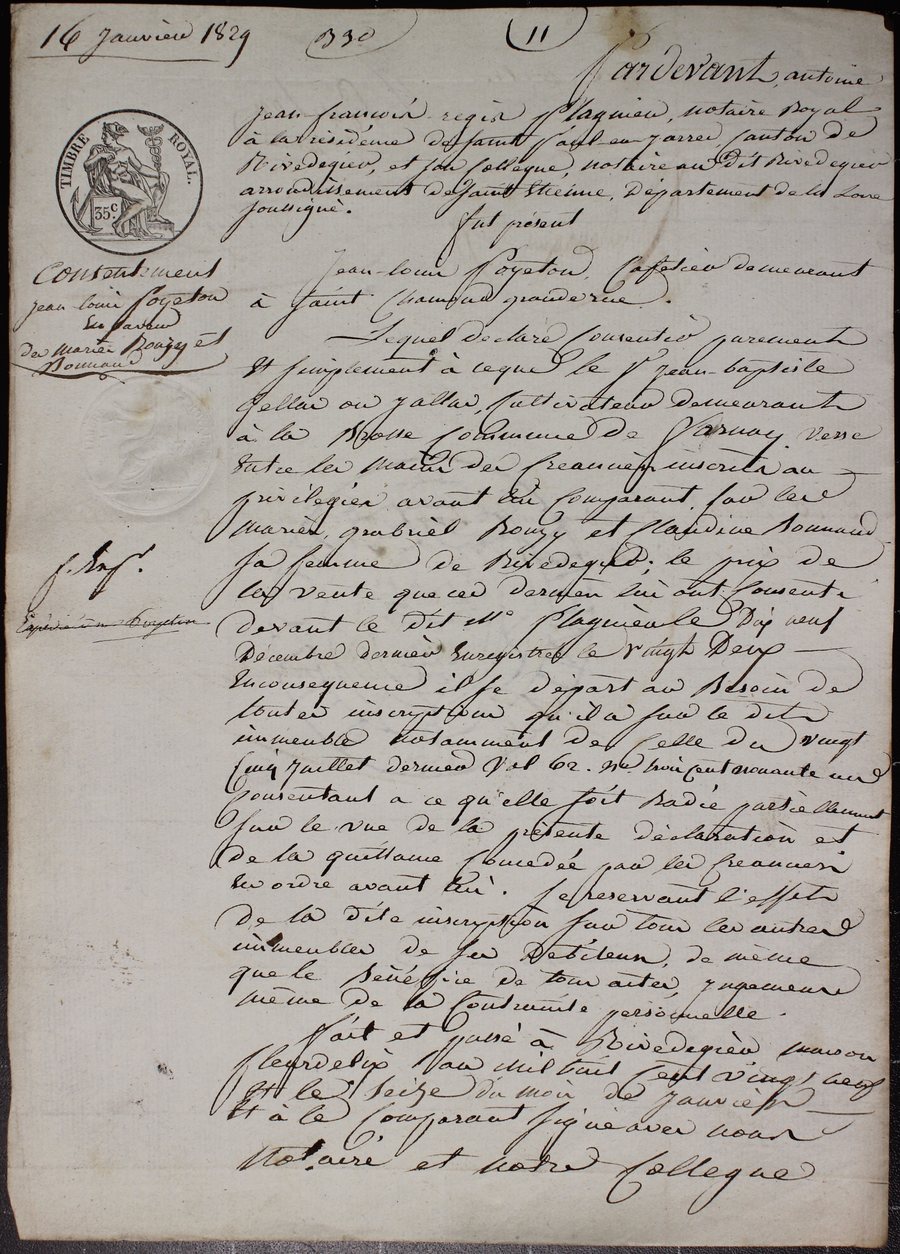 16 Janvier 1829
330
11
Pardevant, antoine
Jean françois-regis Plagnieu, notaire Royal
à la résidence de Saint Paul-en-Jarret Canton de
Rivedegier, et son Collegue, notaire au dit Rivedegier
arrondissement de Saint Etienne, Departement de la Loire
soussigné.
fut présent
TIMBRE ROYAL.
35.c
Consentement
Jean-louis Poyeton
En faveur
des mariés Bouzy et
Bonnand
Jean-louis Poyeton, Cafétier demeurant
à Saint Chamond grande rue.
Lequel declare Consentir purement
Et simplement à ceque le Sr Jean-baptiste
Jallat, Cultivateur demeurant
à la Brosse Commune de Farnay, verse
Entre les mains des Creanciers inscrits au
privilégiés avant lui Comparant, sur les
mariés, grabriël Bouzy et Claudine Bonnand
sa femme de Rivedegier; le prix de
la vente que ces derniers lui ont Consenti
devant le dit Me Plagnieu le Dix neuf
Décembre dernier Enregistrée le vingt Deux
Enconsequence il se départ au Besoin de
toutes inscriptions qu'il a sur le dit
immeuble notamment de Celle du vingt
Cinq Juillet dernier Vol 62. No. trois cent nonante
Consentant a ce qu'elle soit Radiée partiellement
sur le vue de la présente déclaration et
de la quittance Concedée par les Creanciers
En ordre avant lui. se reservant l'effet
de la dite inscription sur tous les autres
immeubles de ses Debiteurs, de même
que le Bénéfice de tous actes, jugements
même de la Contrainte personnelle.
fait et passé à Rivedegier, maison
fleurdelix l'an mil huit Cent vingt neuf
Et le Seize du mois de Janvier
Et à le Comparant signé avec nous
Notaire et notre Collegue